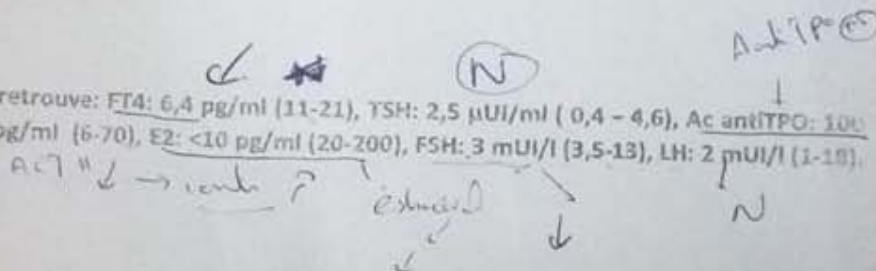 Anti TPO
N
retrouve: FT4: 6,4 pg/ml (11-21), TSH: 2,5 µUI/ml ( 0,4 – 4,6), Ac antiTPO: 100
pg/ml (6-70), E2: <10 pg/ml (20-200), FSH: 3 mUI/l (3,5-13), LH: 2 mUI/l (1-18).
N